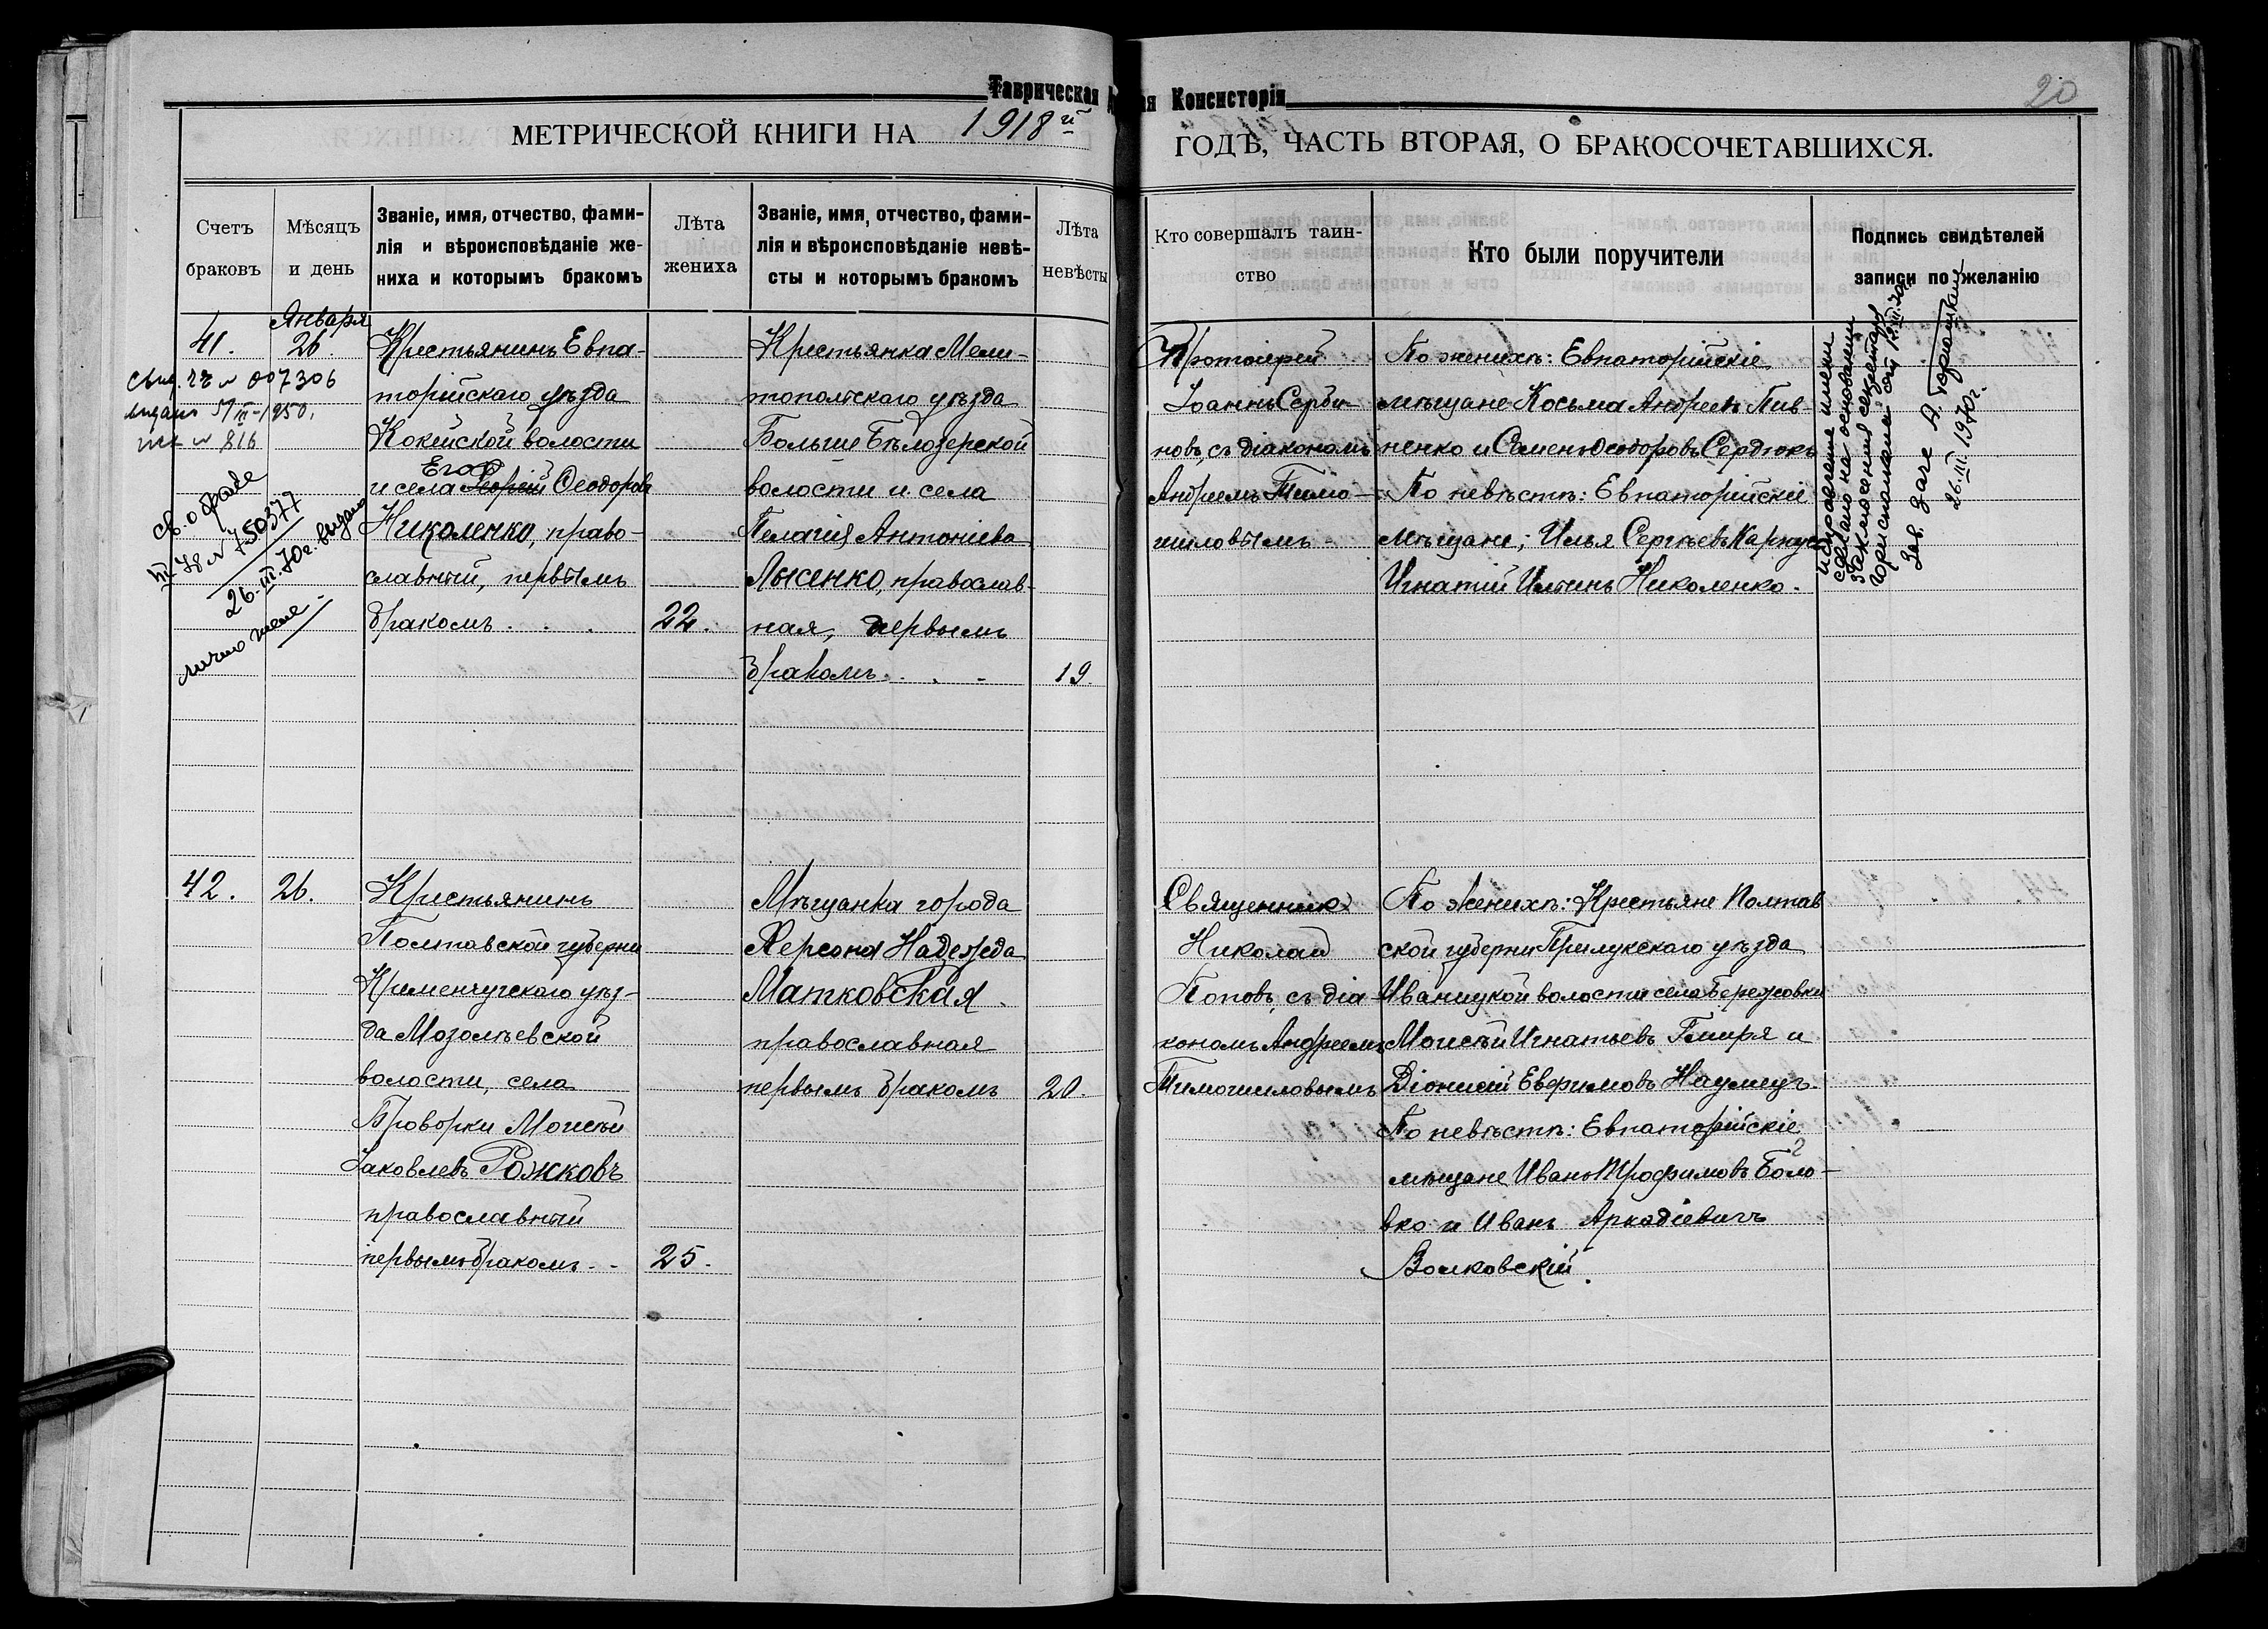 Таврическая
ая Консисторія
20
МЕТРИЧЕСКОЙ КНИГИ НА 1918й
ГОДЪ, ЧАСТЬ ВТОРАЯ, О БРАКОСОЧЕТАВШИХСЯ.
Счетъ
браковъ
Мѣсяцъ
и день
Званіе, имя, отчество, фами-
лія и вѣроисповѣданіе же-
ниха и которымъ бракомъ
Лѣта
жениха
Званіе, имя, отчество, фами-
лія и вѣроисповѣданіе невѣ-
сты и которымъ бракомъ
Лѣта
невѣсты
Кто совершалъ таин-
ство
Кто были поручители
Подпись свидѣтелей
записи по желанію
41.
Января
26.
007306
816
св. о браке
№ 750377
26.III.70г. выдано
лично жене.
Крестьянинъ Евпа-
торійскаго уѣзда
Кокейской волости
Егор
и села Георгій Ѳеодоровъ
Николенко, право-
славный, первымъ
бракомъ . . .
22.
Крестьянка Мели-
топольскаго уѣзда
Больше Бѣлозерской
волости и села
Пелагія Антоніева
Лысенко, православ-
ная, первымъ
бракомъ . . -
19.
Протоіерей
Іоаннъ Серби-
новъ, съ діакономъ
Андреемъ Тимо-
шиловымъ
По женихѣ: Евпаторійскіе
мѣщане Косьма Андреевъ Пив-
ненко и Семенъ Ѳеодоровъ Сердюкъ
По невѣстѣ: Евпаторійскіе
мѣщане; Илья Сергѣевъ
Игнатій Ильинъ Николенко.
исправление имени
сделано на основании
заключения секретаря
горисполкома от
Зав. Загс А.
26.III.1970г.
42.
26.
Крестьянинъ
Полтавской губерніи
Кременчугского уѣз-
да Мозолѣевской
волости, села
Проворки Моисей
Іаковлевъ Рожковъ
православный
первымъ бракомъ - -
25.
Мѣщанка города
Херсона Надежда
Матковская
православная
первымъ бракомъ
20.
Священникъ
Николай
Поповъ, съ діа-
кономъ Андреемъ
Тимошиловымъ
По женихѣ: Крестьяне Полтав
ской губерніи Прилукскаго уѣзда
Иваницкой волости села Бережовки
Моисей Игнатьевъ Гмиря и
Діонисій Евфимовъ Наумецъ
По невѣстѣ: Евпаторійскіе
мѣщане Иванъ Трофимовъ Боло-
вко и Иванъ Аркадіевичъ
Волковскій.